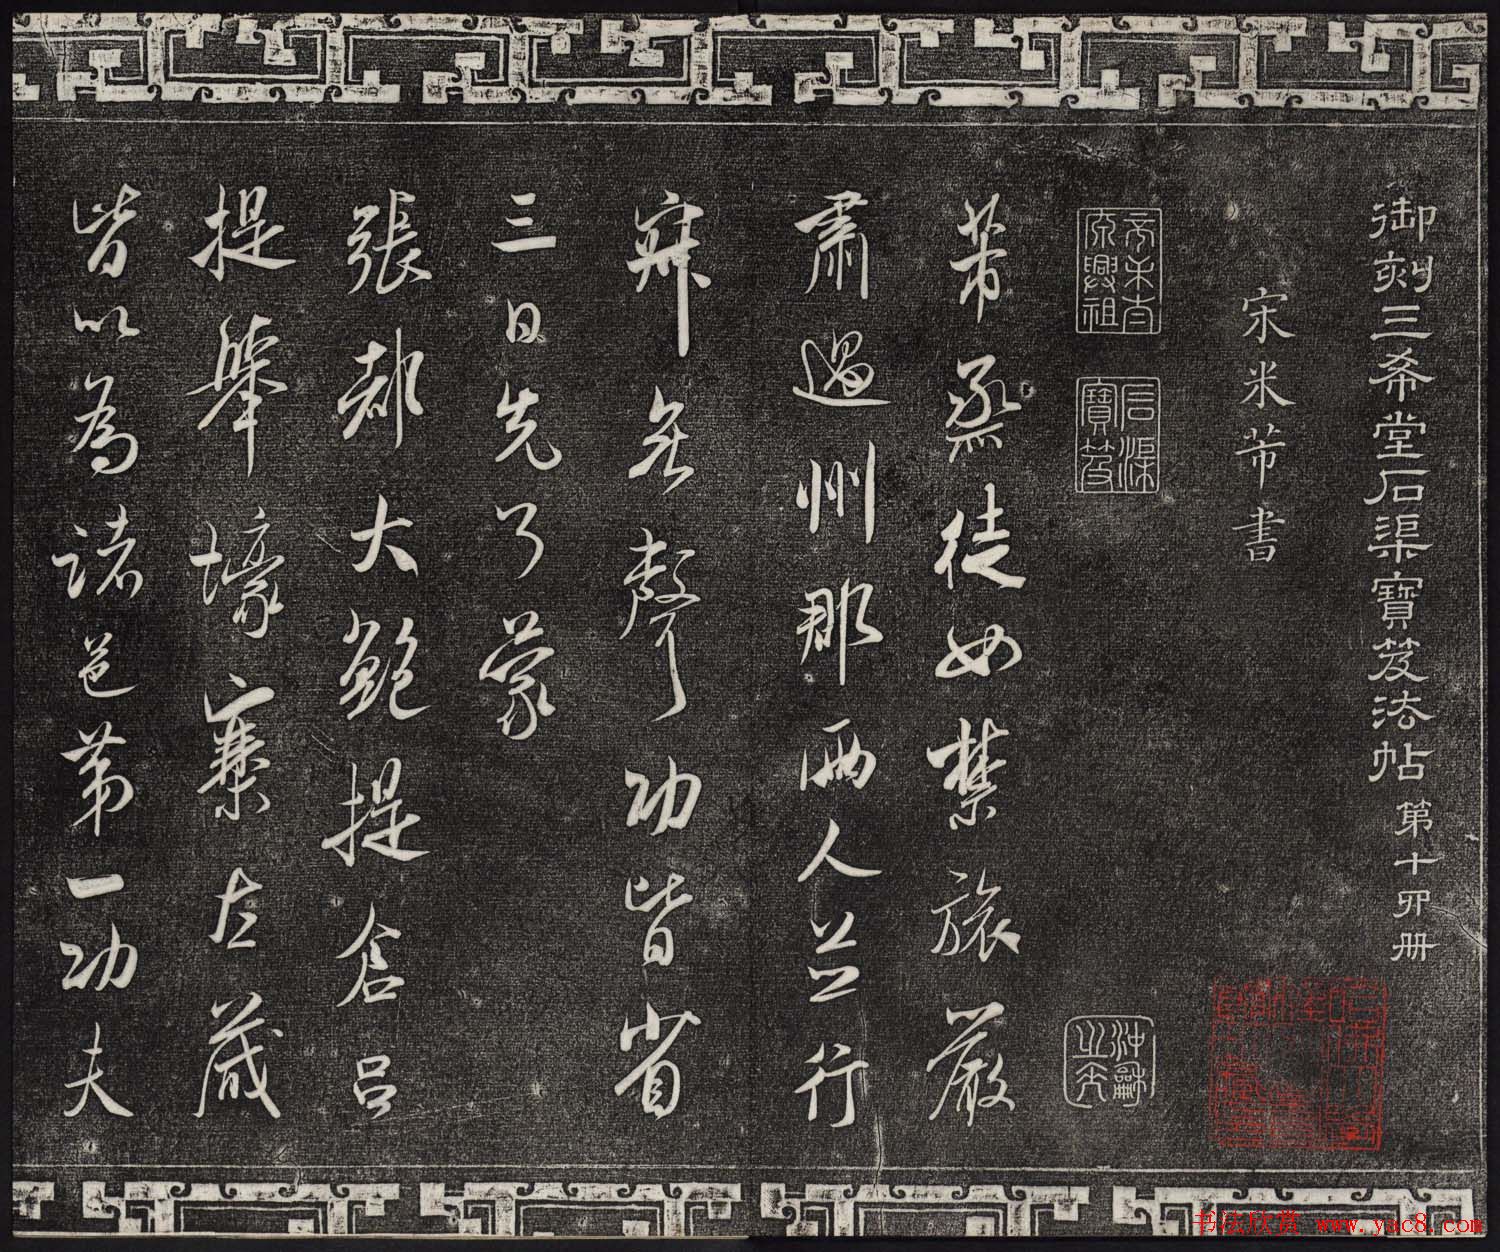 御刻三希堂石渠寶笈法帖 第十四冊
宋米芾書
芾烝徒如禁旅嚴
肅過州郡兩人並行
寂無聲功皆省
三日先了蒙
張都大鮑提倉呂
提舉壕寨左藏
皆以為諸邑第一功夫
石渠
寶笈
书法欣赏 www.yac8.com